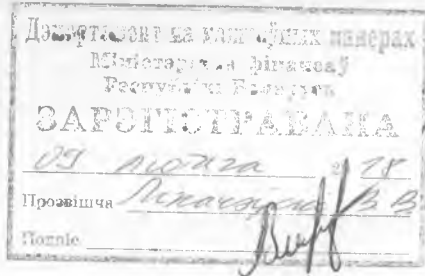 Дэпартамент па каштоўных паперах
Міністэрства фінансаў
Рэспублікі Беларусь
ЗАРЭГІСТРАВАНА
09 лютага 18
Прозвішча В В
Подпіс